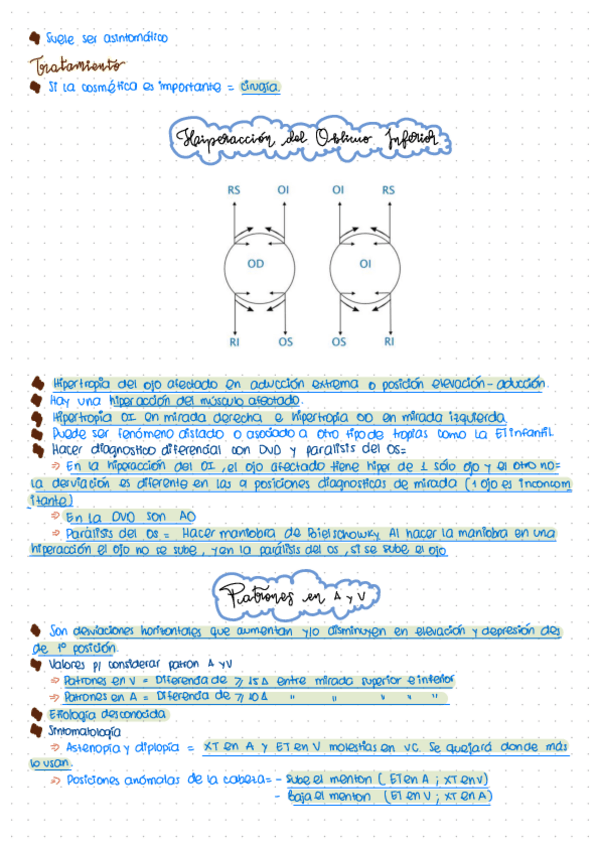 Suele ser asintomático
Tratamiento
Si la cosmética es importante = cirugía.
Hiperacción del Oblicuo Inferior
RS OI OI RS
OD OI
RI OS OS RI
Hipertropia del ojo afectado en aducción extrema o posición elevación-aducción.
Hay una hiperacción del músculo afectado.
Hipertropia OI en mirada derecha e hipertropia OD en mirada izquierda
Puede ser fenómeno aislado o asociado a otro tipo de tropias como la ET infantil
Hacer diagnostico diferencial con DVD y paralisis del OS=
⇒ En la hiperacción del OI, el ojo afectado tiene hiper de 1 sólo ojo y el otro no=
la derviación es diferente en las 9 posiciones diagnosticas de mirada (1 ojo es inconcom
itante)
⇒ En la DVD son AO
⇒ Parálisis del OS = Hacer maniobra de Bielschowky. Al hacer la maniobra en una
hiperacción el ojo no se sube, y en la parálisis del OS, si se sube el ojo
Patrones en A y V
Son desviaciones horizontales que aumentan y/o disminuyen en elevación y depresión des
de 1º posición.
Valores p/ considerar patron A y V
⇒ Patrones en V = Diferencia de ≥ 15Δ entre mirada superior e inferior
⇒ Patrones en A = Diferencia de ≥ 10Δ " " " " "
Etiología desconocida
Sintomatología
⇒ Astenopia y diplopia = XT en A y ET en V molestias en VC. Se quejará donde más
lo usan.
⇒ Posiciones anómalas de la cabeza= - Sube el menton ( ET en A ; XT en V)
- Baja el menton (ET en V ; XT en A)